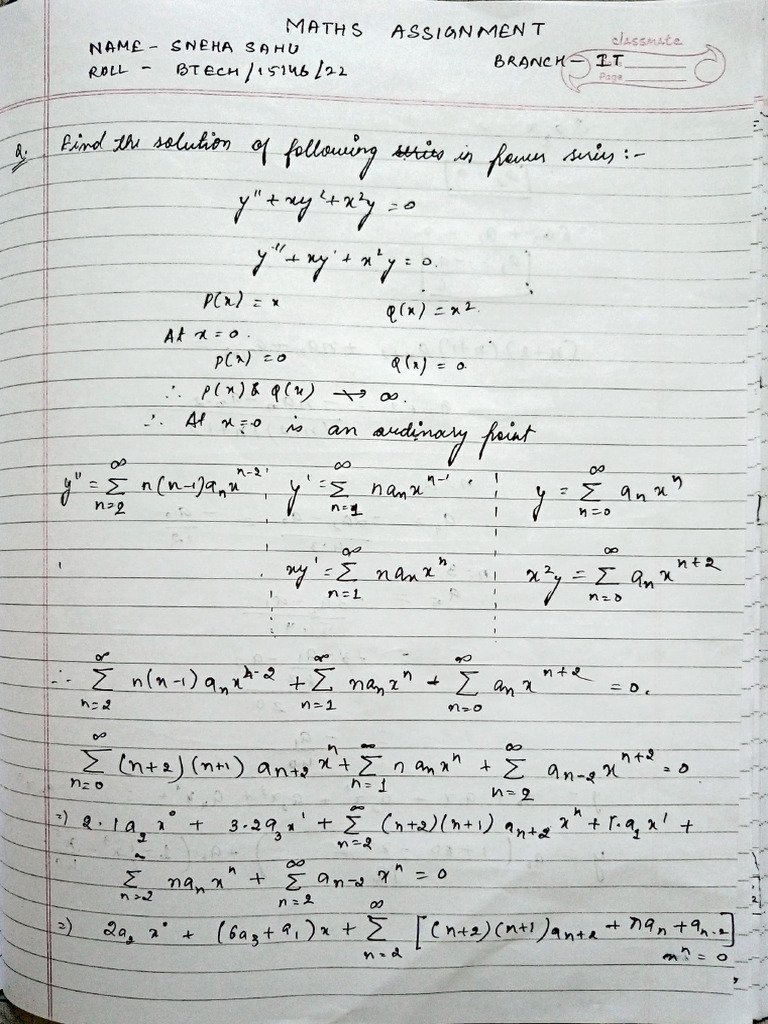 MATHS ASSIGNMENT
classmate
NAME - SNEHA SAHU
BRANCH - IT
ROLL - BTECH/15146/22
Page
Q. Find the solution of following series in power series :-
y'' + xy' + x²y = 0
y'' + xy' + x²y = 0.
P(x) = x Q(x) = x².
At x = 0.
P(x) = 0 Q(x) = 0.
∴ P(x) & Q(x) ↛ ∞.
∴ At x = 0 is an ordinary point
y'' = ∑_{n=2}^{∞} n(n-1)aₙx^{n-2} , y' = ∑_{n=1}^{∞} naₙx^{n-1} . y = ∑_{n=0}^{∞} aₙxⁿ
xy' = ∑_{n=1}^{∞} naₙxⁿ x²y = ∑_{n=0}^{∞} aₙx^{n+2}
∴ ∑_{n=2}^{∞} n(n-1)aₙx^{n-2} + ∑_{n=1}^{∞} naₙxⁿ + ∑_{n=0}^{∞} aₙx^{n+2} = 0.
∑_{n=0}^{∞} (n+2)(n+1) a_{n+2} xⁿ + ∑_{n=1}^{∞} n aₙxⁿ + ∑_{n=2}^{∞} a_{n-2} x^{n+2} = 0
=) 2·1a₂x⁰ + 3·2a₃x¹ + ∑_{n=2}^{∞} (n+2)(n+1) a_{n+2} xⁿ + 1·a₁x¹ +
∑_{n=2}^{∞} naₙxⁿ + ∑_{n=2}^{∞} a_{n-2} xⁿ = 0
=) 2a₂x⁰ + (6a₃+a₁)x + ∑_{n=2}^{∞} [(n+2)(n+1)a_{n+2} + naₙ + a_{n-2}]
xⁿ = 0